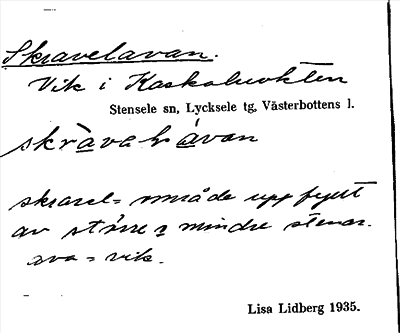 Skravelavan.
Vik i Kaskoluokten
Stensele sn, Lycksele tg, Västerbottens l.
skràvalávan
skravel = område uppfyllt
av större o mindre stenar.
ava = vik.
Lisa Lidberg 1935.